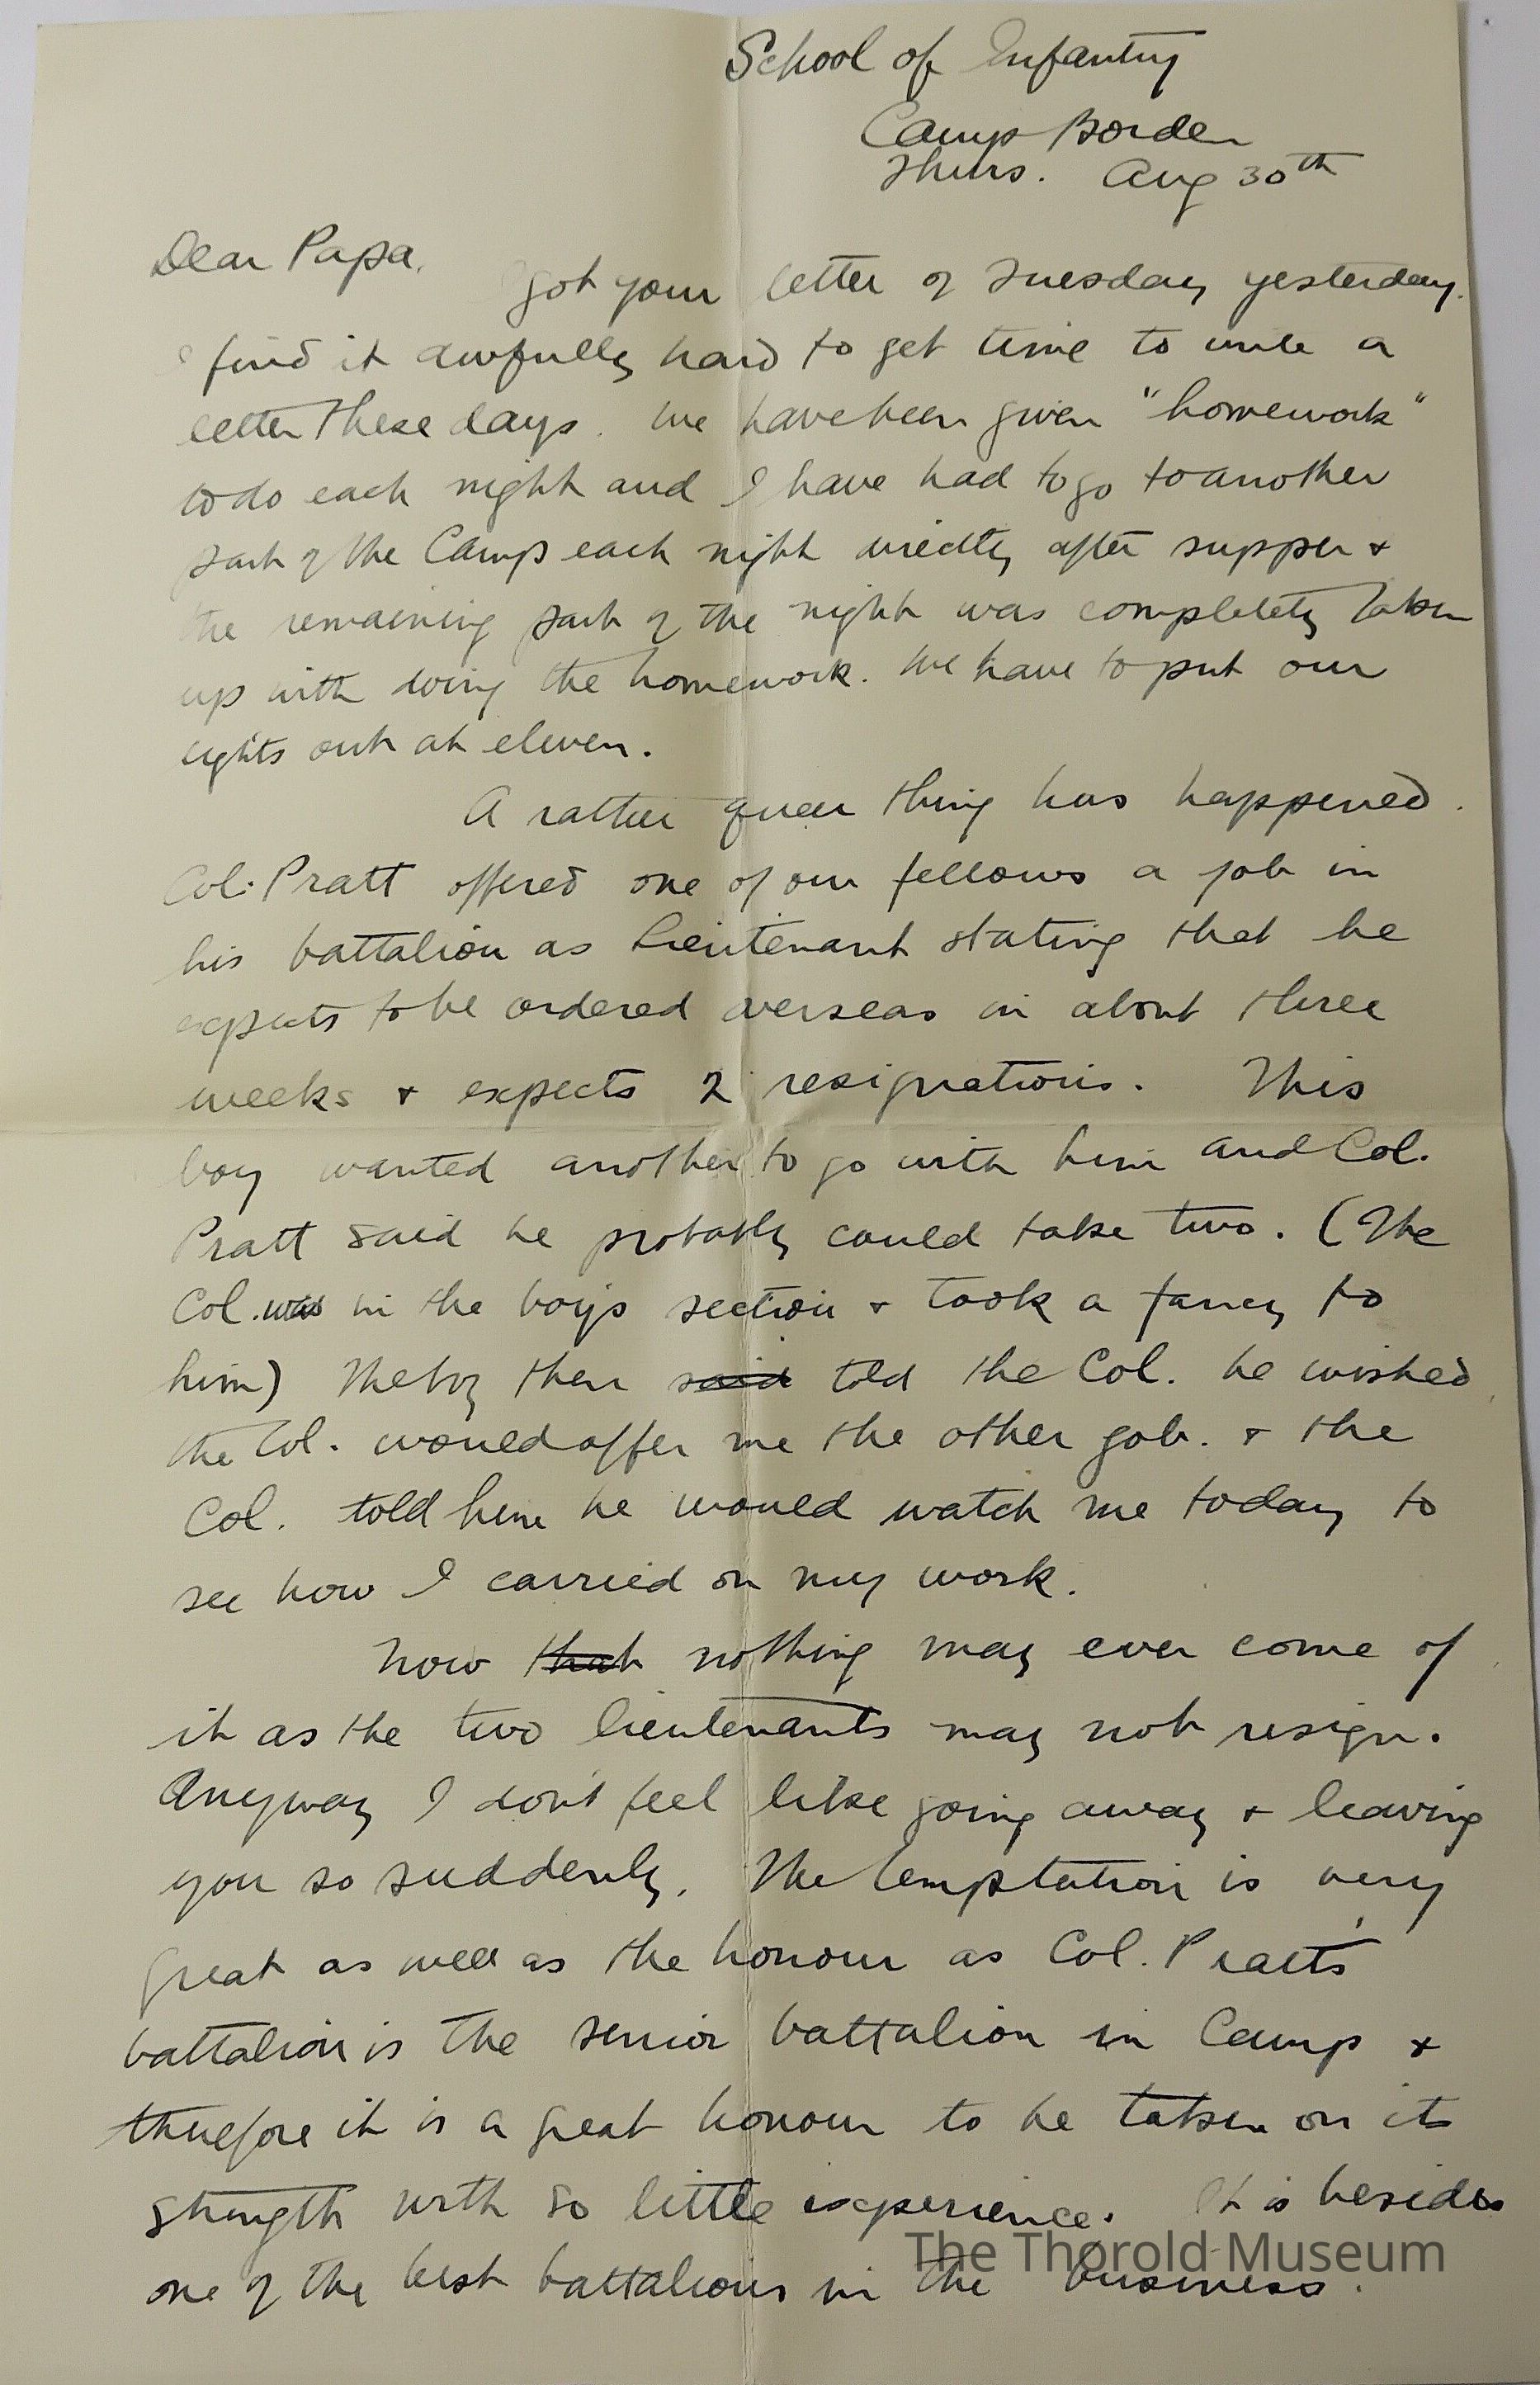 School of Infantry
Camp Borden
Thurs. Aug 30th
Dear Papa.
I got your letter of Tuesday yesterday.
I find it awfully hard to get time to write a
letter these days. We have been given "homework"
to do each night and I have had to go to another
part of the Camp each night directly after supper &
the remaining part of the night was completely taken
up with doing the homework. We have to put our
lights out at eleven.
A rather queer thing has happened.
Col. Pratt offered one of our fellows a job in
his battalion as Lieutenant stating that he
expects to be ordered overseas in about three
weeks & expects 2 resignations. This
boy wanted another to go with him and Col.
Pratt said he probably could take two. (The
Col. was in the boy's section & took a fancy to
him) The boy then said told the Col. he wished
the Col. would offer me the other job. & the
Col. told him he would watch me today to
see how I carried on my work.
Now that nothing may ever come of
it as the two lieutenants may not resign.
Anyway I don't feel like going away & leaving
you so suddenly. The temptation is very
great as well as the honour as Col. Pratt's
battalion is the senior battalion in Camp &
therefore it is a great honour to be taken on its
strength with so little experience. It is besides
one of the best battalions in the business.
The Thorold Museum